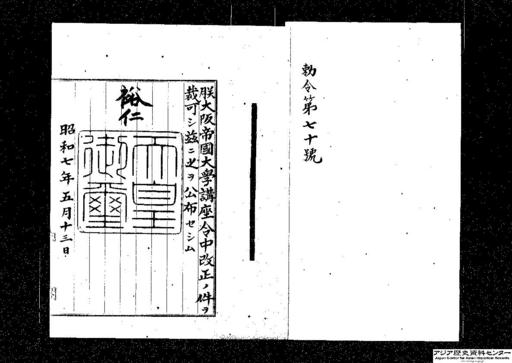 勅令第七十號
朕大阪帝國大學講座令中改正ノ件ヲ
裁可シ茲ニ之ヲ公布セシム
裕仁
天皇御璽
昭和七年五月十三日
アジア歴史資料センター
Japan Center for Asian Historical Records